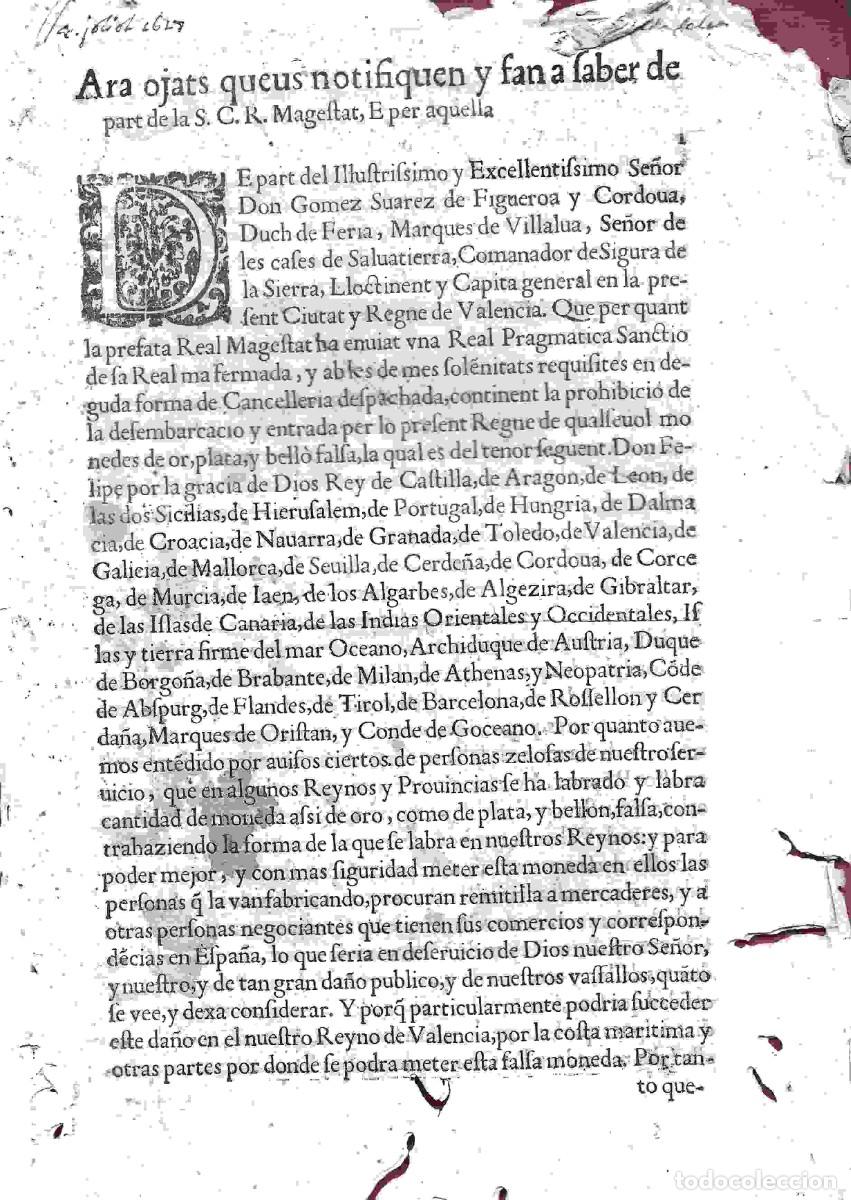 Ara ojats queus notifiquen y fan a ſaber de
part de la S. C. R. Mageſtat, E per aquella
DE part del Illuſtriſsimo y Excellentiſsimo Señor
Don Gomez Suarez de Figueroa y Cordoua,
Duch de Feria, Marques de Villalua, Señor de
les caſes de Saluatierra, Comanador de Sigura de
la Sierra, Lloctinent y Capita general en la pre-
ſent Ciutat y Regne de Valencia. Que per quant
la prefata Real Mageſtat ha enuiat vna Real Pragmatica Sanctio
de ſa Real ma fermada, y ab les de mes ſolẽnitats requiſites en de-
guda forma de Cancelleria deſpachada, continent la prohibició de
la deſembarcacio y entrada per lo preſent Regne de qualſeuol mo
nedes de or, plata, y bellò falſa, la qual es del tenor ſeguent. Don Fe-
lipe por la gracia de Dios Rey de Caſtilla, de Aragon, de Leon, de
las dos Sicilias, de Hieruſalem, de Portugal, de Hungria, de Dalma
cia, de Croacia, de Nauarra, de Granada, de Toledo, de Valencia, de
Galicia, de Mallorca, de Seuilla, de Cerdeña, de Cordoua, de Corce
ga, de Murcia, de Iaen, de los Algarbes, de Algezira, de Gibraltar,
de las Iſlas de Canaria, de las Indias Orientales y Occidentales, Iſ
las y tierra firme del mar Oceano, Archiduque de Auſtria, Duque
de Borgoña, de Brabante, de Milan, de Athenas, y Neopatria, Cõde
de Abſpurg, de Flandes, de Tirol, de Barcelona, de Roſſellon y Cer
daña, Marques de Oriſtan, y Conde de Goceano. Por quanto aue-
mos entẽdido por auiſos ciertos de perſonas zeloſas de nueſtro ſer-
uicio, que en algunos Reynos y Prouincias ſe ha labrado y labra
cantidad de moneda aſsi de oro, como de plata, y bellon, falſa, con-
trahaziendo la forma de la que ſe labra en nueſtros Reynos: y para
poder mejor, y con mas ſiguridad meter eſta moneda en ellos las
perſonas q̃ la van fabricando, procuran remitilla a mercaderes, y a
otras perſonas negociantes que tienen ſus comercios y correſpon-
dẽcias en Eſpaña, lo que ſeria en deſeruicio de Dios nueſtro Señor,
y nueſtro, y de tan gran daño publico, y de nueſtros vaſſallos, quãto
ſe vee, y dexa conſiderar. Y porq̃ particularmente podria ſucceder
eſte daño en el nueſtro Reyno de Valencia, por la coſta maritima y
otras partes por donde ſe podra meter eſta falſa moneda. Por tan-
to que-
todocoleccion